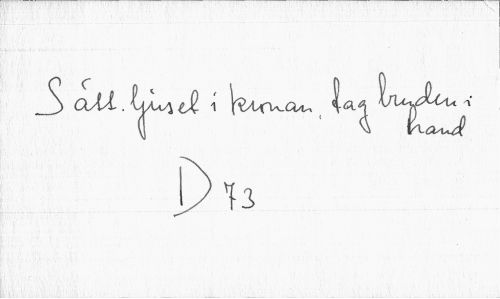 Sätt ljuset i kronan, tag bruden i
hand
D 73